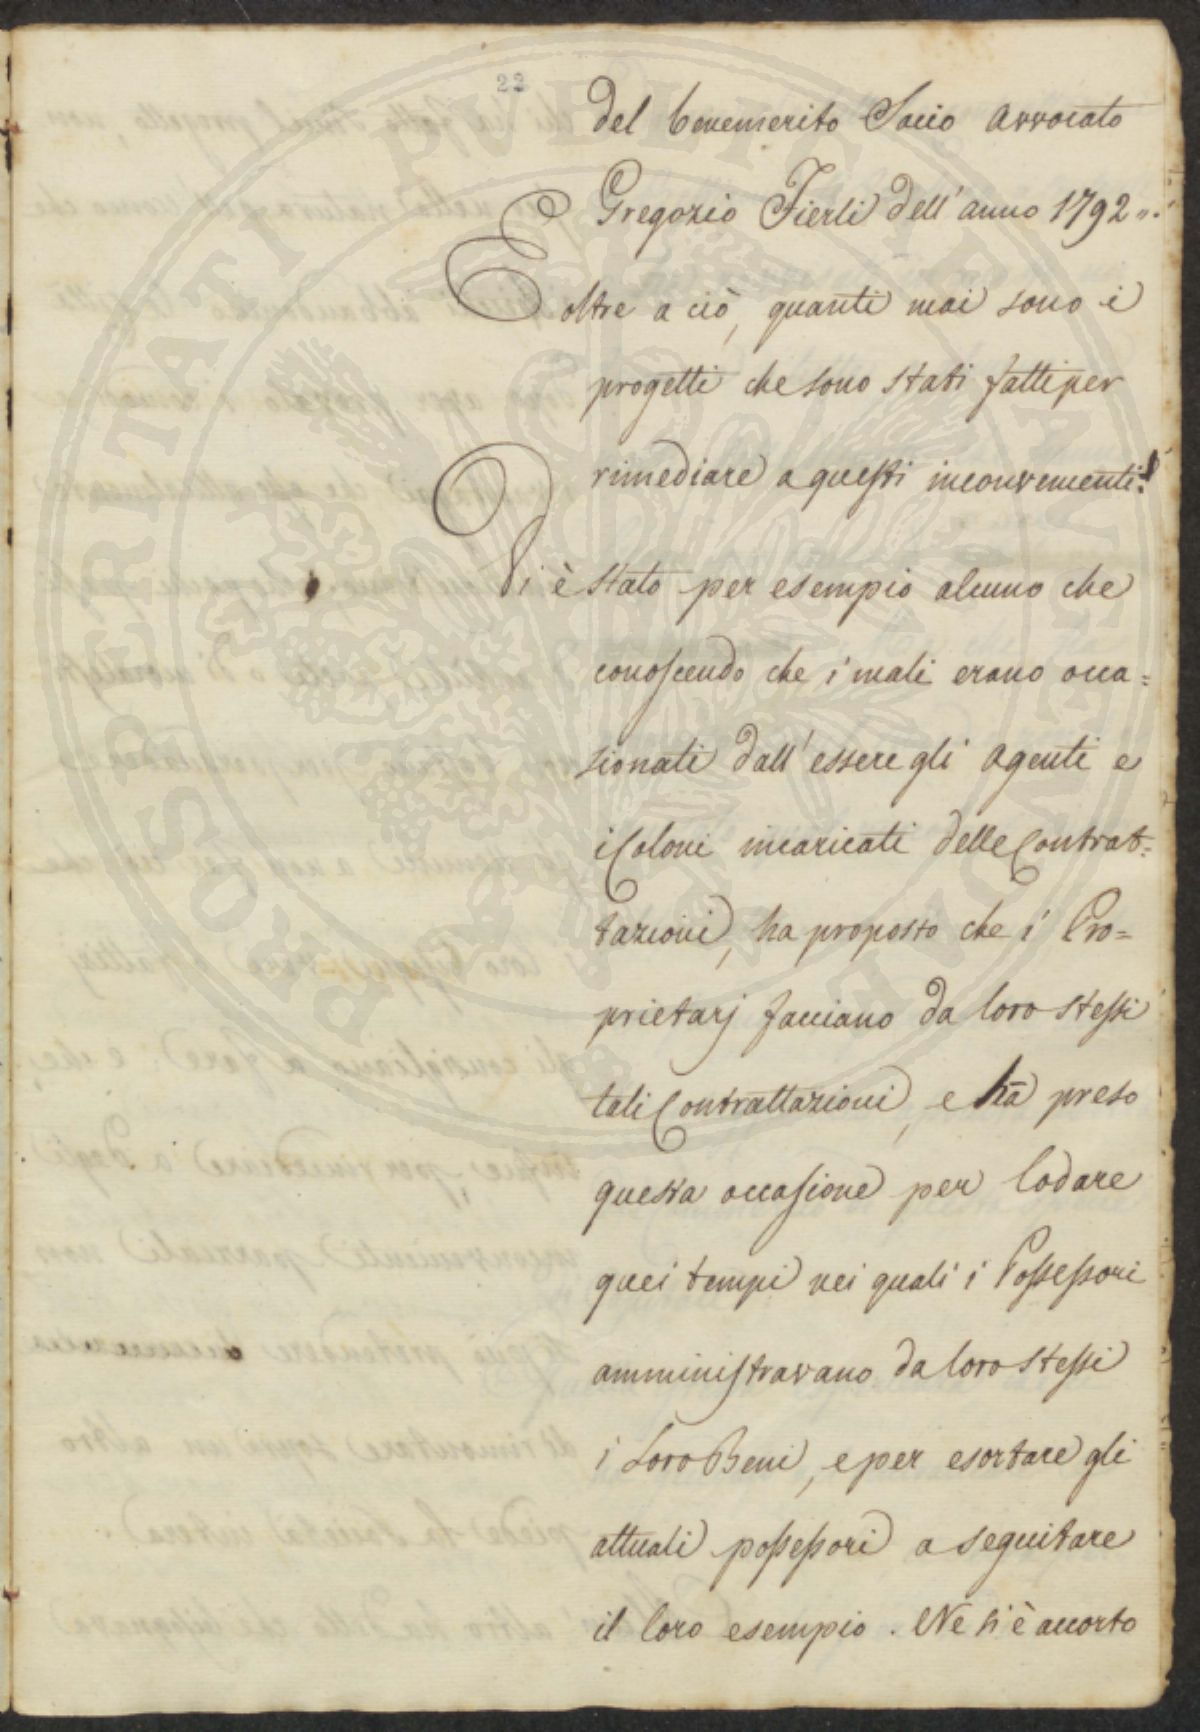 22
del benemerito Socio Avvocato
Gregorio Fierli dell'anno 1792 „.
E oltre a ciò, quanti mai sono i
progetti che sono stati fatti per
rimediare a questi inconvenienti!
Vi è stato per esempio alcuno che
conoscendo che i mali erano occa=
sionati dall'essere gli Agenti e
i Coloni incaricati delle Contrat=
tazioni, ha proposto che i Pro=
prietarj facciano da loro stessi
tali Contrattazioni, e ha preso
questa occasione per lodare
quei tempi nei quali i Possessori
amministravano da loro stessi
i Loro Beni, e per esortare gli
attuali possessori a seguitare
il loro esempio. Ne si è accorto
PROSPERITATI PVBLICAE AVGENDAE